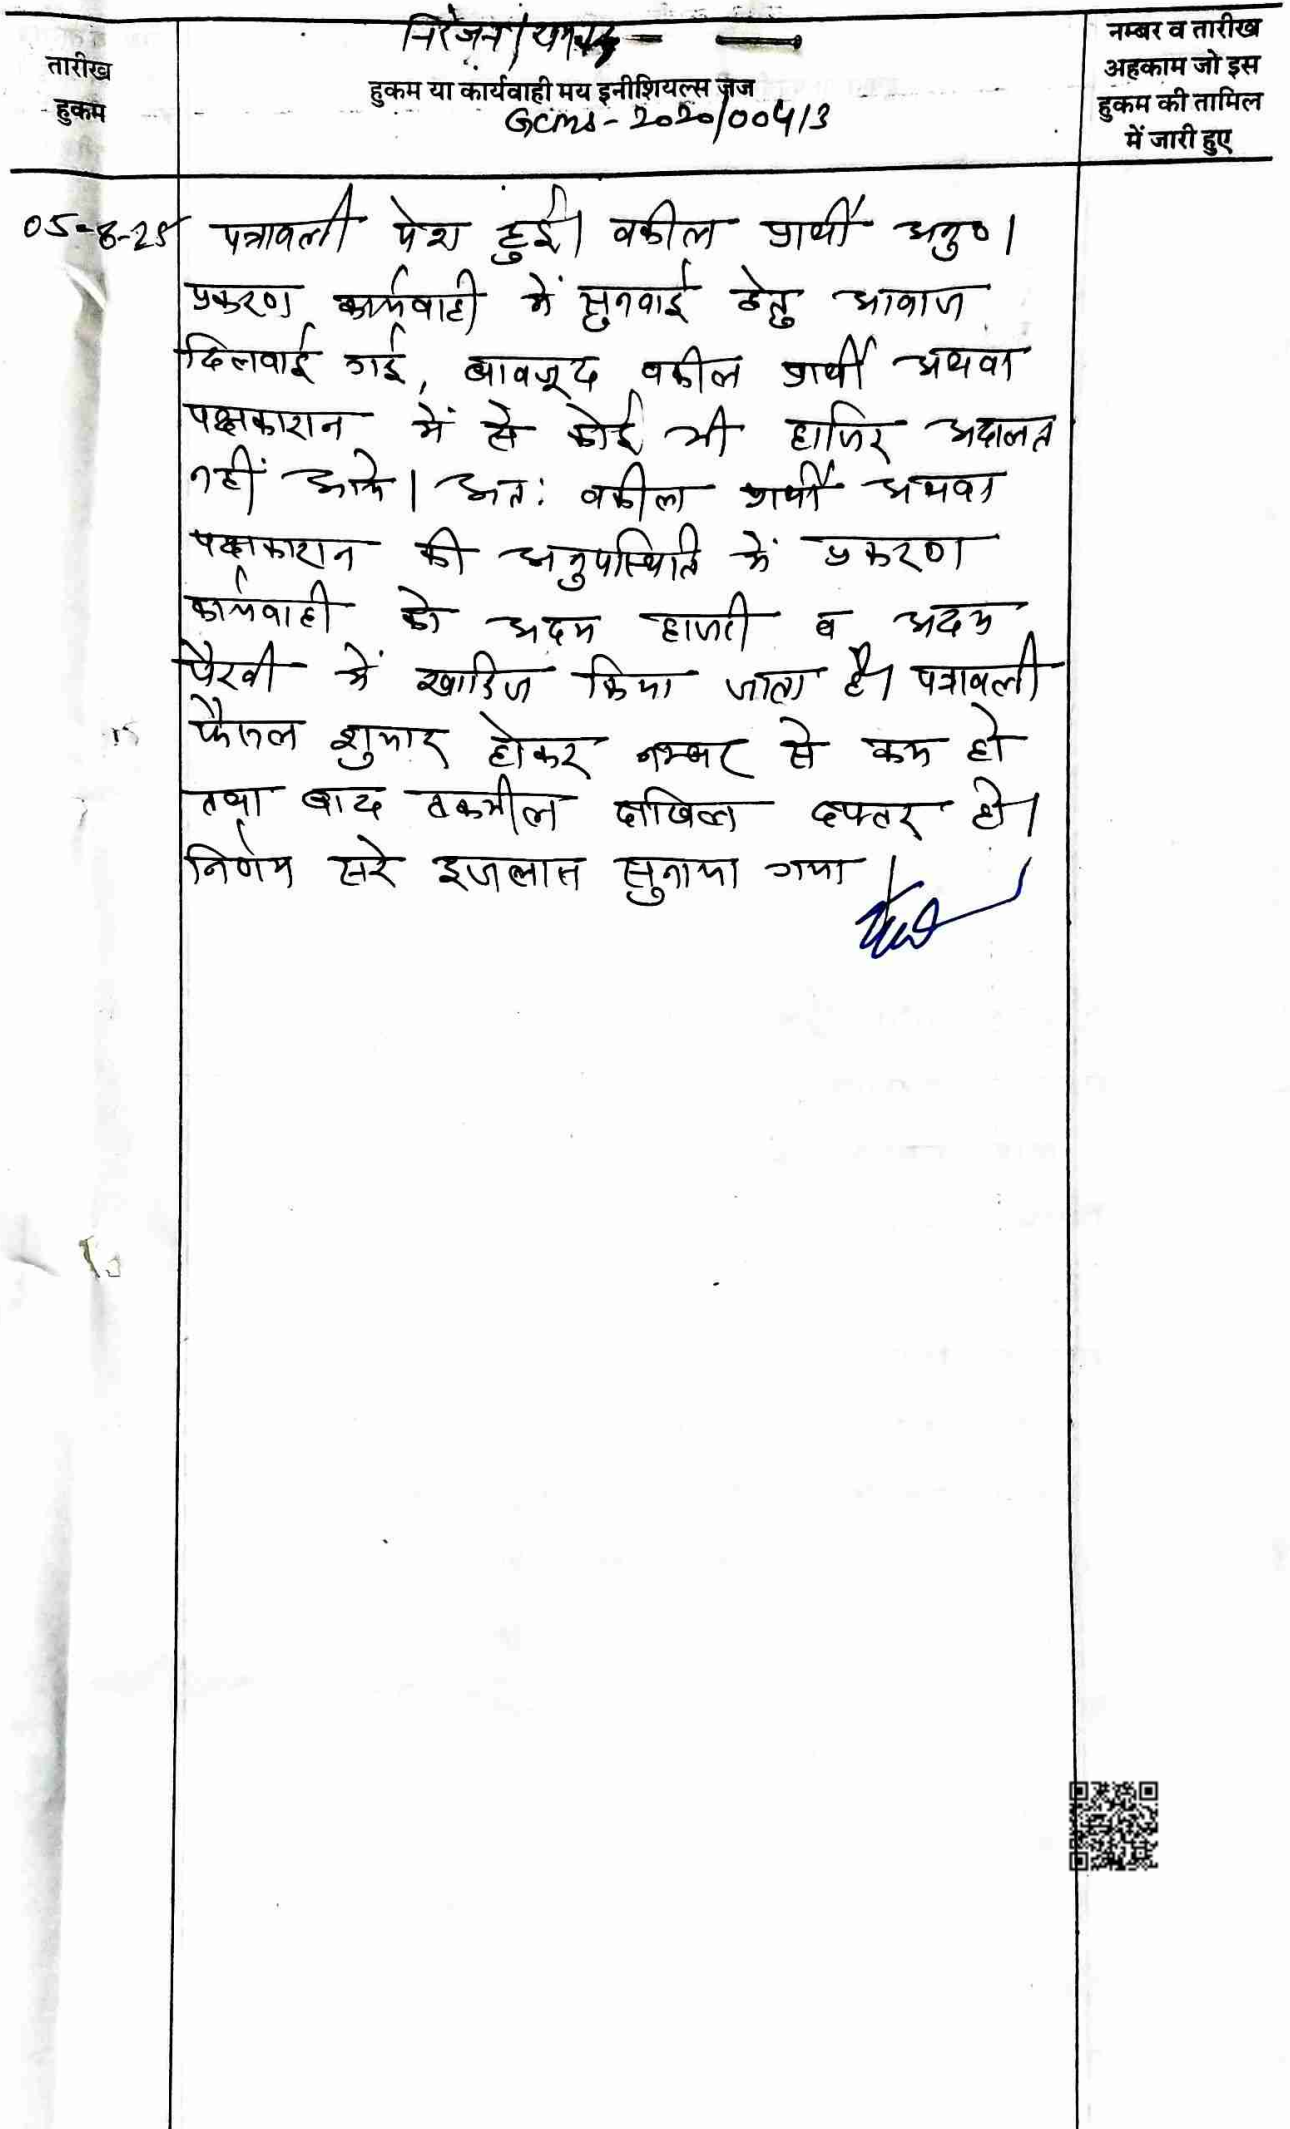 निरंजन /
तारीख
हुकम
हुकम या कार्यवाही मय इनीशियल्स जज
GCMS - 2020/00413
नम्बर व तारीख
अहकाम जो इस
हुकम की तामिल
में जारी हुए
05-8-25 पत्रावली पेश हुई। वकील प्रार्थी अनु०।
प्रकरण कार्यवाही में सुनवाई हेतु आवाज
दिलवाई गई, बावजूद वकील प्रार्थी अथवा
पक्षकारान में से कोई भी हाजिर अदालत
नहीं आये। अतः वकील प्रार्थी अथवा
पक्षकारान की अनुपस्थिति में प्रकरण
कार्यवाही को अदम हाजरी व अदम
पैरवी में खारिज किया जाता है। पत्रावली
फैसल शुमार होकर नम्बर से कम हो
तथा बाद तकमील दाखिल दफ्तर हो।
निर्णय सरे इजलास सुनाया गया।